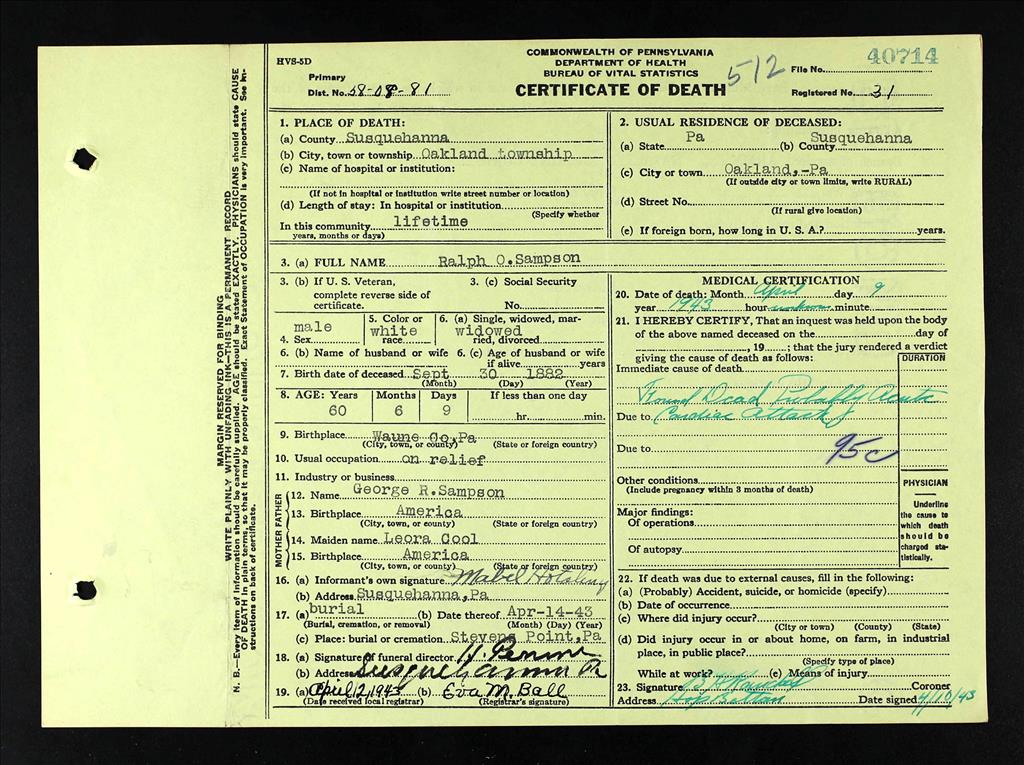 HVS-5D
COMMONWEALTH OF PENNSYLVANIA
DEPARTMENT OF HEALTH
BUREAU OF VITAL STATISTICS
CERTIFICATE OF DEATH
512
40714
File No.
Primary
Dist. No. 58-08-81
Registered No. 31
MARGIN RESERVED FOR BINDING
WRITE PLAINLY WITH UNFADING INK—THIS IS A PERMANENT RECORD
N. B.—Every item of information should be carefully supplied. AGE should be stated EXACTLY. PHYSICIANS should state CAUSE
OF DEATH in plain terms, so that it may be properly classified. Exact Statement of OCCUPATION is very important. See in-
structions on back of certificate.
1. PLACE OF DEATH:
(a) County Susquehanna
(b) City, town or township Oakland township
(c) Name of hospital or institution:
(If not in hospital or institution write street number or location)
(d) Length of stay: In hospital or institution
(Specify whether
In this community lifetime
years, months or days)
2. USUAL RESIDENCE OF DECEASED:
(a) State Pa (b) County Susquehanna
(c) City or town Oakland,-Pa
(If outside city or town limits, write RURAL)
(d) Street No.
(If rural give location)
(e) If foreign born, how long in U. S. A.? years.
3. (a) FULL NAME Ralph O.Sampson
3. (b) If U. S. Veteran,
complete reverse side of
certificate.
3. (c) Social Security
No.
4. Sex male
5. Color or
race white
6. (a) Single, widowed, mar-
ried, divorced. widowed
6. (b) Name of husband or wife
6. (c) Age of husband or wife
if alive years
7. Birth date of deceased Sept 30 1882
(Month) (Day) (Year)
8. AGE: Years Months Days If less than one day
60 6 9 hr. min.
9. Birthplace Waune Co.Pa
(City, town, or county) (State or foreign country)
10. Usual occupation on relief
11. Industry or business
FATHER
12. Name George R.Sampson
13. Birthplace America
(City, town, or county) (State or foreign country)
MOTHER
14. Maiden name Leora Cool
15. Birthplace America
(City, town, or county) (State or foreign country)
16. (a) Informant's own signature Mabel
(b) Address Susquehanna,Pa
17. (a) burial (b) Date thereof Apr-14-43
(Burial, cremation, or removal) (Month) (Day) (Year)
(c) Place: burial or cremation Stevens Point,Pa
18. (a) Signature of funeral director H.
(b) Address Susquehanna Pa
19. (a) April 12, 1943 (b) Eva M. Ball
(Date received local registrar) (Registrar's signature)
MEDICAL CERTIFICATION
20. Date of death: Month April day 9
year 1943 hour unknown minute
21. I HEREBY CERTIFY, That an inquest was held upon the body
of the above named deceased on the day of
, 19 ; that the jury rendered a verdict
giving the cause of death as follows:
DURATION
Immediate cause of death
Found Dead Probably Acute
Due to Cardiac Attack
Due to
95c
Other conditions
(Include pregnancy within 3 months of death)
Major findings:
Of operations
Of autopsy
PHYSICIAN
Underline
the cause to
which death
should be
charged sta-
tistically.
22. If death was due to external causes, fill in the following:
(a) (Probably) Accident, suicide, or homicide (specify)
(b) Date of occurrence
(c) Where did injury occur?
(City or town) (County) (State)
(d) Did injury occur in or about home, on farm, in industrial
place, in public place?
(Specify type of place)
While at work? (e) Means of injury
23. Signature Coroner
Address Date signed 4/10/43